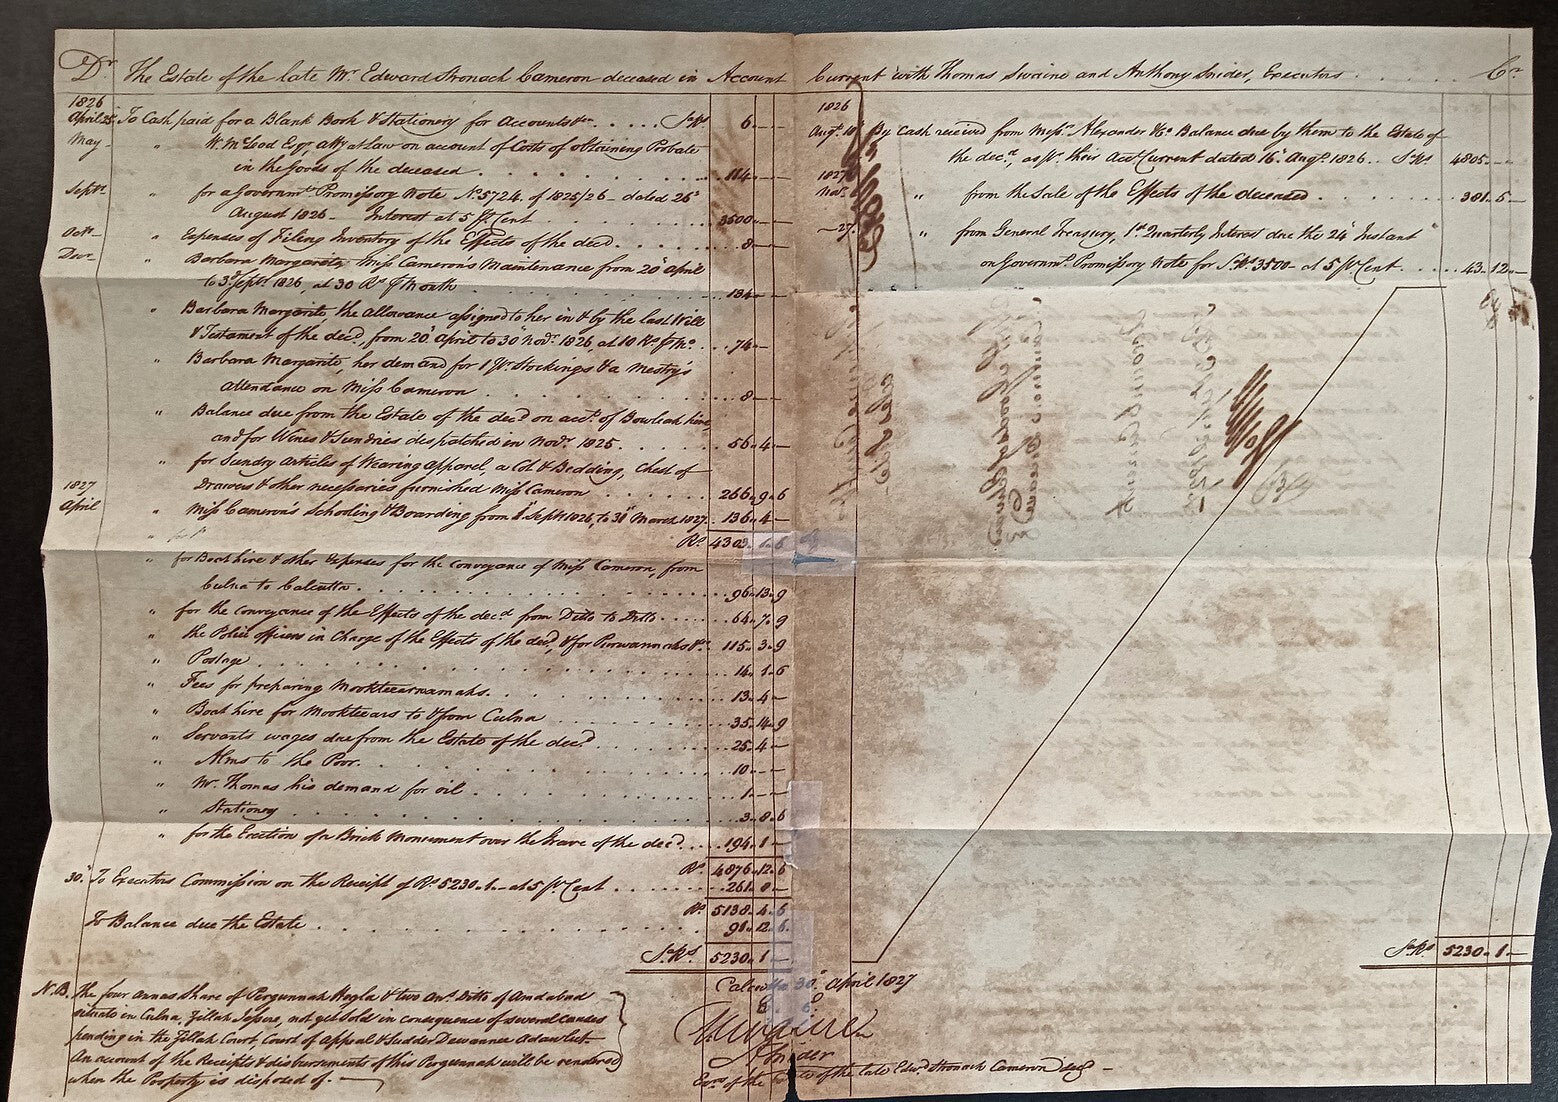 Dr The Estate of the late Mr. Edward Stronach Cameron deceased in Account Current with Thomas Swaine and Anthony Snider, Executors Cr.
1826
April 25 To Cash paid for a Blank Book & Stationery for Accounts &c. . . . . Sa. Rs. 6 " —
May " W. McLeod Esqr. atty at Law on account of Costs of obtaining Probate
in the goods of the deceased . . . . 114 —
Septr. for a Governmt. Promissory Note, No. 5724 of 1825/26 - dated 26th
August 1826 - Interest at 5 pr. Cent . . . . 3500 —
Octr. " Expenses of Filing Inventory of the Effects of the decd. . . . . 8 —
Decr. " Barbara Margarite, Miss Cameron's Maintenance from 20th April
to 3d Septr. 1826, at 30 Rs. pr. Month . . . . 134 —
" Barbara Margarite the allowance assigned to her in & by the last Will
& Testament of the decd., from 20th April to 30th Novr. 1826, at 10 Rs. pr. Mo. . . 74 —
" Barbara Margarite, her demand for 1 Pr. Stockings & a Mestry's
attendance on Miss Cameron . . . . 8 —
" Balance due from the Estate of the decd. on acct. of Bowleah hire,
and for Wines & Sundries despatched in Novr. 1825 . . . . 56 " 4 —
" for Sundry articles of Wearing apparel, a Cot & Bedding, Chest of
Drawers & other necessaries furnished Miss Cameron . . . . 266 " 9 " 6
1827
April " Miss Cameron's Schooling & Boarding from Septr. 1826, to 31st March 1827 . . 136 " 4 —
Rs. 4303 " 1 " 6
" for Boat hire & other Expenses for the Conveyance of Miss Cameron, from
Culna to Calcutta . . . . 96 " 13 " 9
" for the conveyance of the Effects of the decd. from Ditto to Ditto . . . . 64 " 7 " 9
" the Police officers in Charge of the Effects of the decd., & for Perwannahs &c. 115 " 3 " 9
" Postage . . . . 14 " 1 " 6
" Fees for preparing Mookteearnamahs . . . . 13 " 4 —
" Boat hire for Mookteears to & from Culna . . . . 35 " 14 " 9
" Servants wages due from the Estate of the decd. . . . . 25 " 4 —
" Alms to the Poor . . . . 10 " —
" Mr. Thomas his demand for oil . . . . 1 " —
" Stationery . . . . 3 " 8 " 6
" for the Erection of a Brick Monument over the Grave of the decd. . . . . 194 " 1 —
Rs. 4876 " 12 " 6
30th To Executors Commission on the Receipt of Rs. 5230 " 1 — at 5 pr. Cent . . . . 261 " 8 —
Rs. 5138 " 4 " 6
To Balance due the Estate . . . . 91 " 12 " 6
Sa. Rs. 5230 " 1 —
N.B. The four annas Share of Pergunnah Hogla & two ans. Ditto of Amdabad
situate in Culna, Zillah Jessore, not yet sold in consequence of several causes
pending in the Zillah Court, Court of appeal & Sudder Dewannee Adawlut.
An account of the Receipts & disbursements of this Pergunnah will be rendered
when the Property is disposed of.
1826
Augt. 18 By Cash received from Messrs. Alexander & Co. Balance due by them to the Estate of
the decd. as pr. their Acct. Current dated 16th Augt. 1826 . . Sa. Rs. 4805 —
1827
" from the Sale of the Effects of the deceased . . . . 381 " 5 —
27 " from General Treasury, 1st Quarterly Interest due the 24th Instant
on Governmt. Promissory Note for Sa. Rs. 3500 — at 5 pr. Cent . . . . 43 " 12 —
Sa. Rs. 5230 " 1 —
Calcutta 30th April 1827
E. E.
T. Swaine
A Snider
Exors. of the Estate of the late Edwd. Stronach Cameron decd.